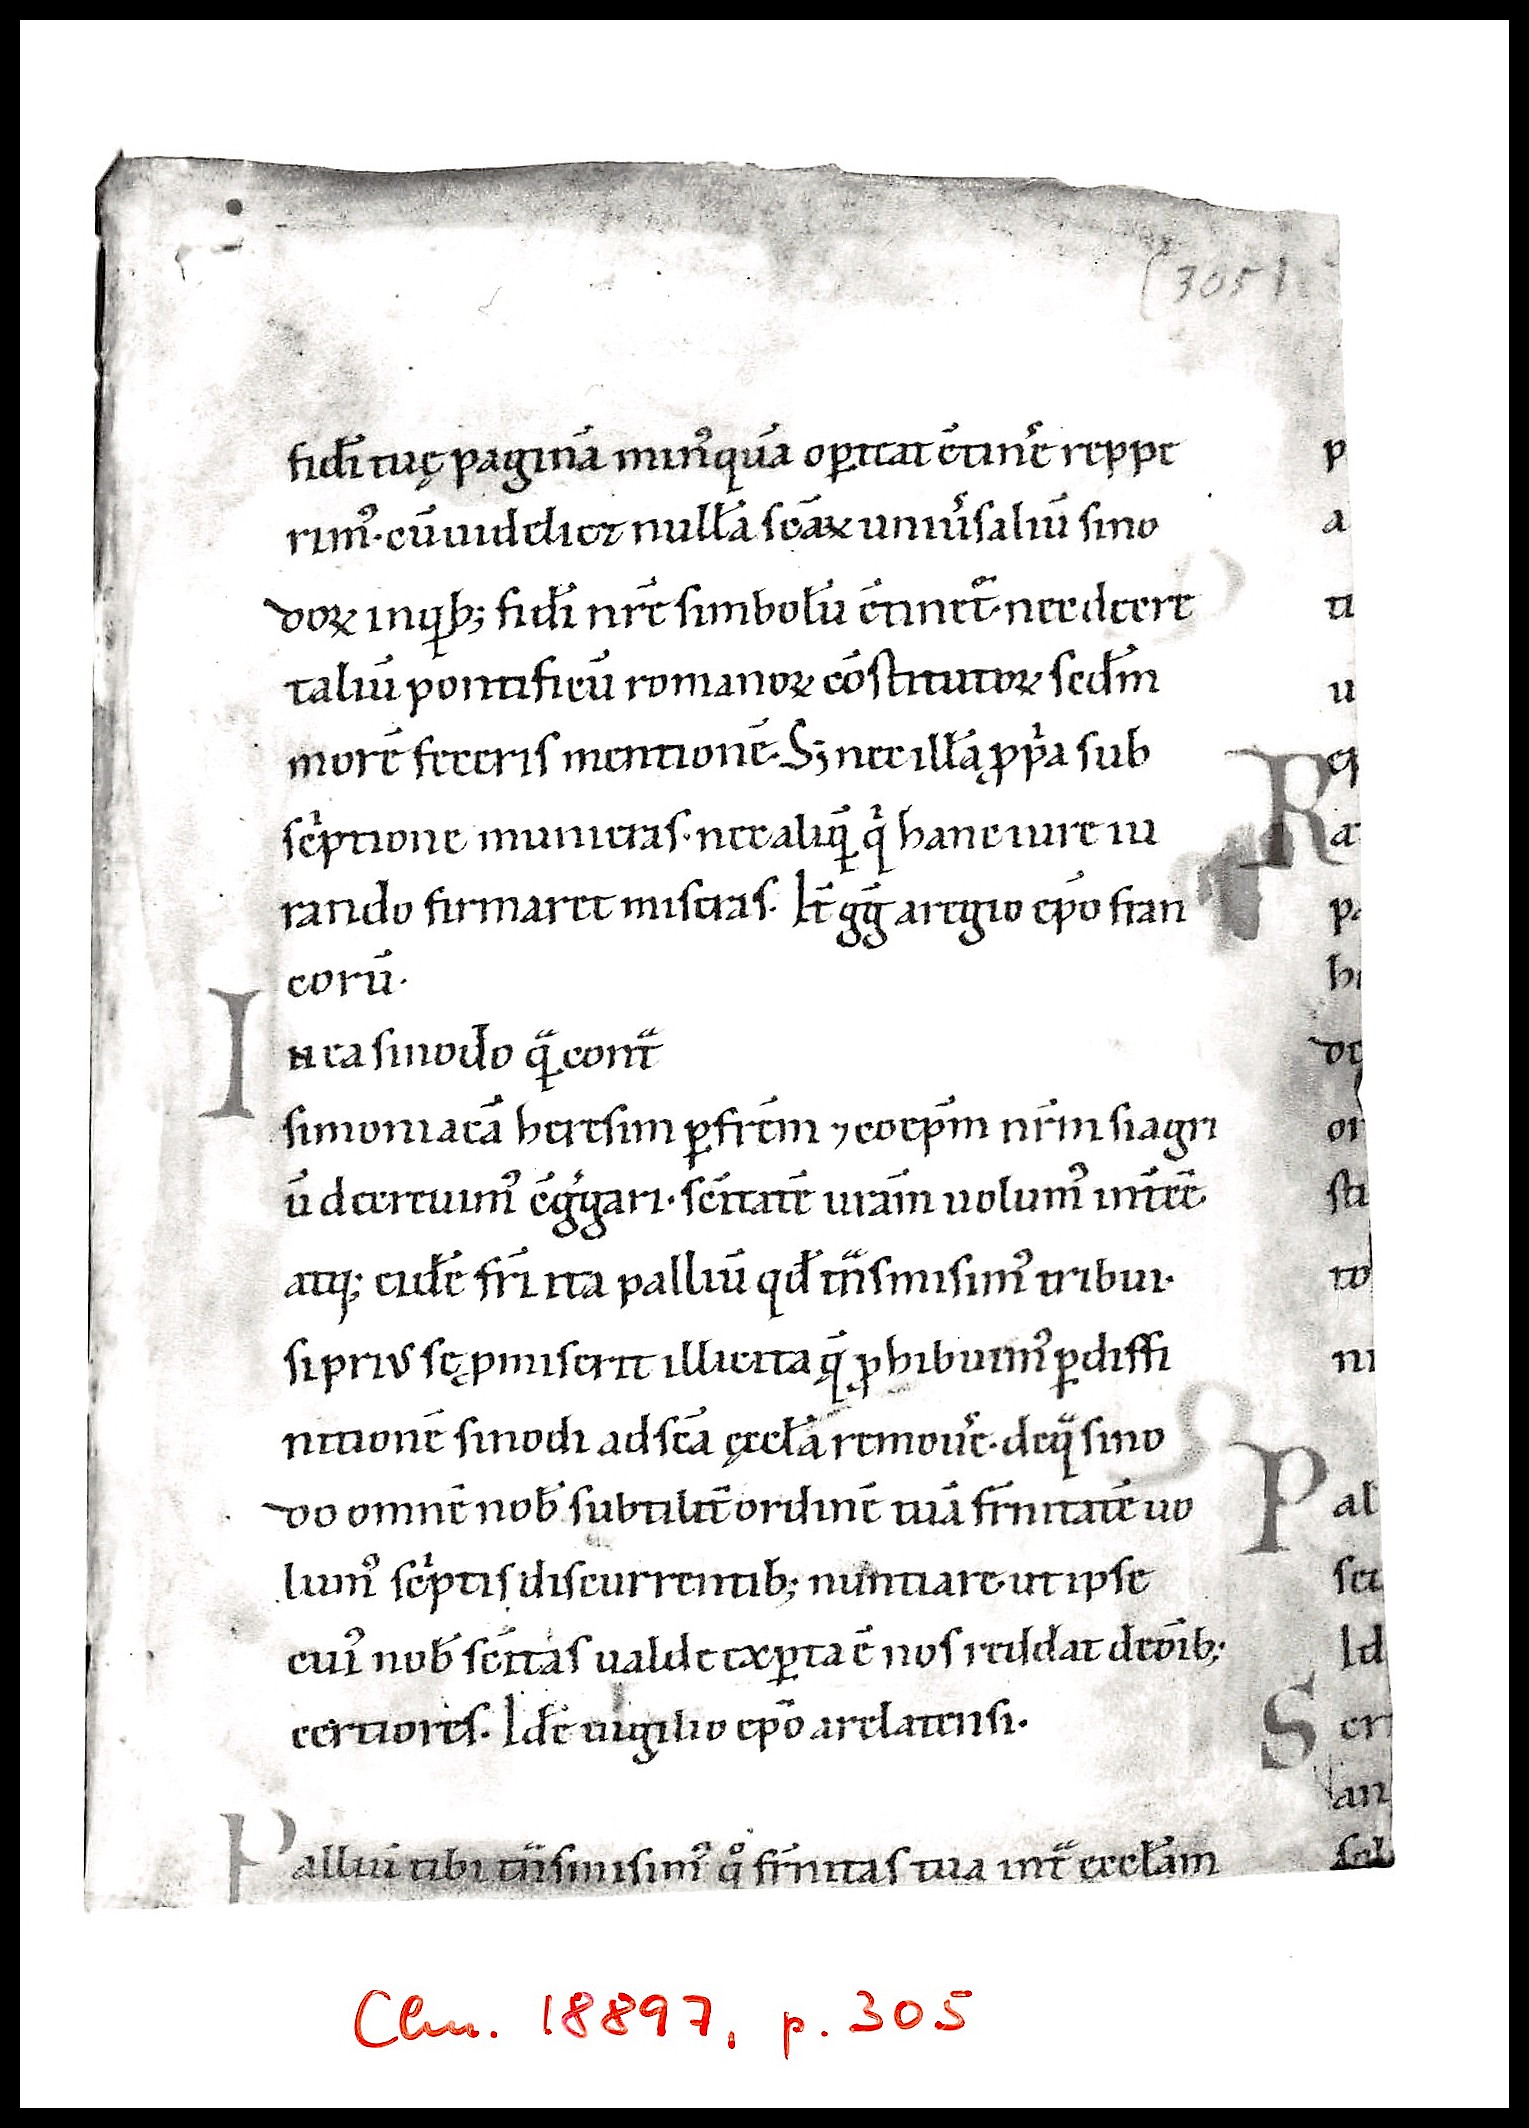 (305)
fidī tuę paginā min᷒quā op̲teat c̄tiner̄e reppe
rim᷒· cū uidelicet nullā scāꝝ uniu̾saliū sino
doꝝ in qͥb; fidī nr̄ę simbolū c̄tinet᷑· nec decre
taliū pontificū romanoꝝ cōstitutoꝝ sed̄m
morē feceris mentionē· Sꝫ nec illā ꝓpͥa sub
scͥptione munieras· nec aliq̄ qͥ hanc iure iu
rando firmaret miseras. It̄ gḡ aregio ep̄o fran
corū·
In ea sinodo q̄ contᷓ
simoniacā heresim ꝑ fr̄em ⁊ coep̄m nr̄m siagri
ū decreuim᷒ c̄gͥgari· sc̄itatē ur̄am uolum᷒ int̄ēē
atq; eidē fr̄i ita palliū qd̄ tn̄smisim᷒ tribui·
si priꝰ sę ꝓmiserit illicita q̄ ꝓhibuim᷒ ꝑ diffi
nitionē sinodi ad scā ęcclā remou̾e· de qᷓ sino
do omnē nob̄ subtilit̄ ordinē tuā fr̄nitatē uo
lum᷒ scͥptis discurrentib; nuntiare· ut ipse
cui᷒ nob̄ sc̄itas ualde exꝑta ē nos reddat de ōīb;
certiores. Idē uigilio ep̄o arelatensi·
Palliū tibi tn̄smisim᷒ qͦ fr̄nitas tua intᷓ ęcclām
p
a
ti
u
R
a
P al
S er
an
Clm. 18897, p. 305